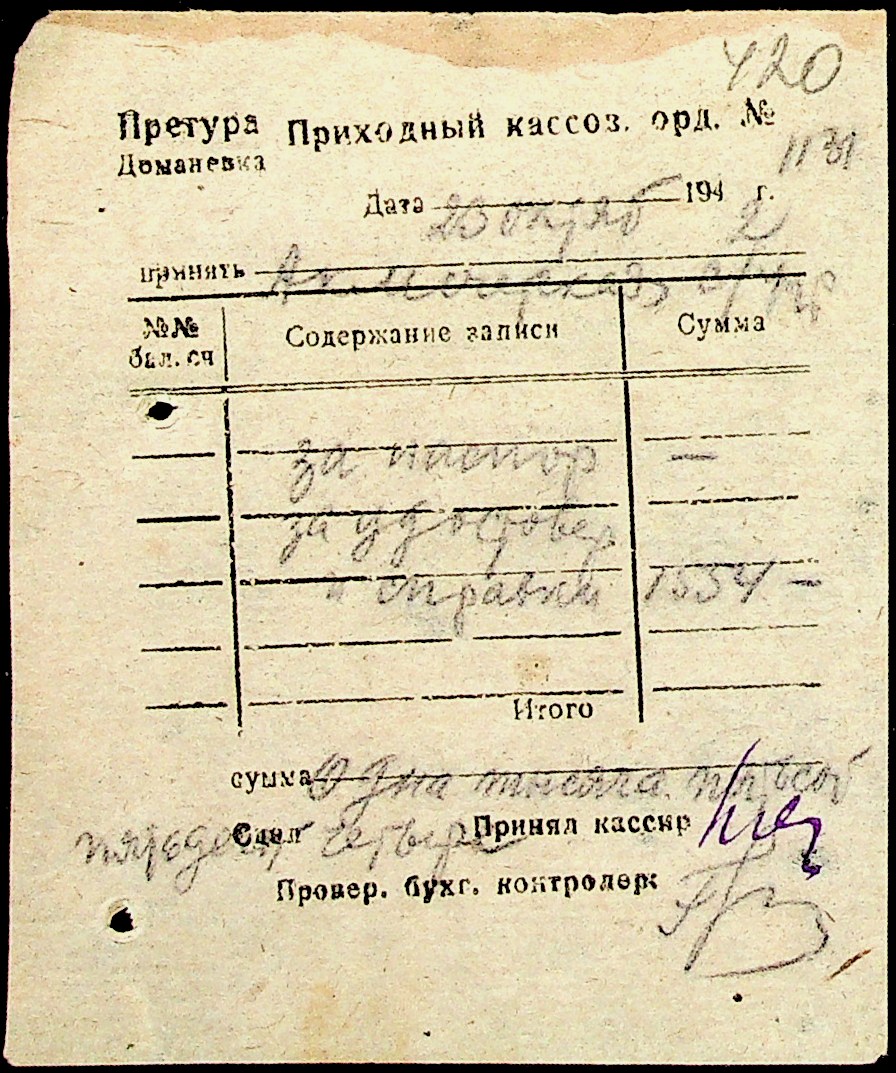 420
Претура Приходный кассоз. орд. №
Доманевка
1131
Дата 194 г.
23 октяб 2
принять
№№ бал. сч Содержание записи Сумма
за паспор —
за удостовер
и справки 1554 —
Итого
сумма Одна тысяча пятьсот
пятьдесят четыре
Сдал Принял кассир
Провер. бухг. контролер: